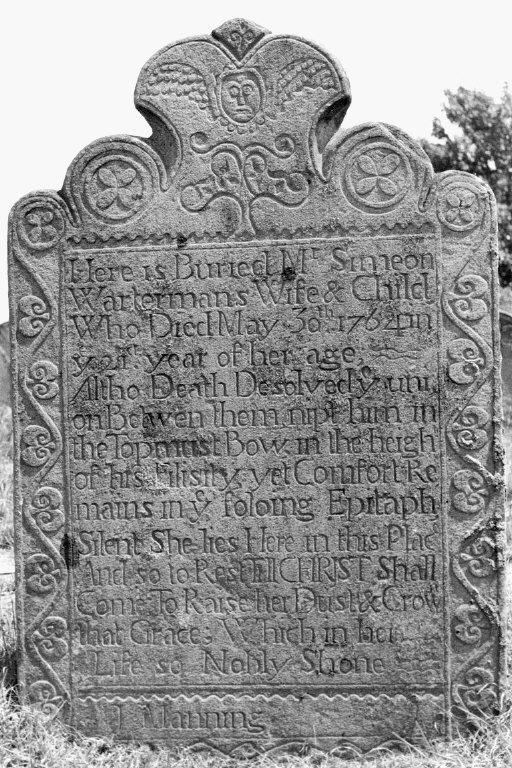 Here is Buried Mr Simeon
Wartermans Wife & Child
Who Died May 30th 1764 in
ye 21st year of her age.
Altho Death Desolved ye uni
on Betwen them nipt him in
the Topmust Bow in the heigh
of his Filisity yet Comfort Re
mains in ye foloing Epitaph
Silent She lies Here in this Plac
And so to Rest Till CHRIST Shall
Come To Raise her Dust & Crow
that Grace Which in her
Life so Nobly Shone
Manning